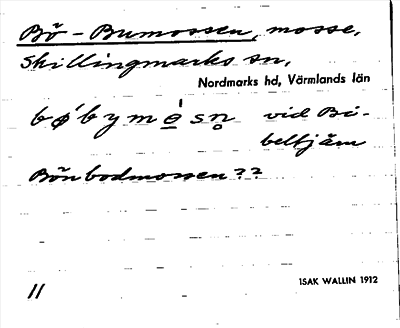 Bö - Bumossen, mosse,
Skillingmarks sn,
Nordmarks hd, Värmlands län
vid Bi-
beltjärn
Bönbodmossen??
11
ISAK WALLIN 1912